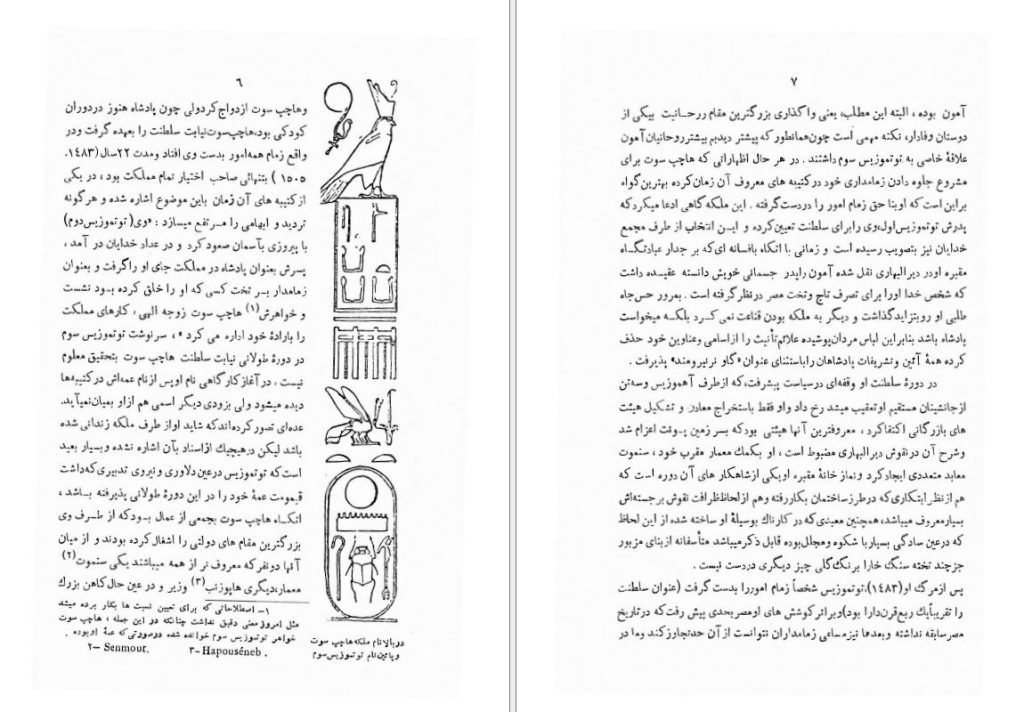 ۶
وهاچپ سوت ازدواج کرد ولی چون پادشاه هنوز در دوران
کودکی بود، هاچپ سوت نیابت سلطنت را بعهده گرفت و در
واقع زمام همه امور بدست وی افتاد و مدت ۲۲ سال (۱۴۸۳-
۱۵۰۵) بتنهائی صاحب اختیار تمام مملکت بود، در یکی
از کتیبه های آن زمان باین موضوع اشاره شده و هر گونه
تردید و ابهامی را مرتفع میسازد: «وی (توتموزیس دوم)
با پیروزی بآسمان صعود کرد و در عداد خدایان در آمد،
پسرش بعنوان پادشاه در مملکت جای او را گرفت و بعنوان
زمامدار بر تخت کسی که او را خلق کرده بود نشست
و خواهرش (۱) هاچپ سوت زوجه الهی، کارهای مملکت
را بارادۀ خود اداره می کرد»، سرنوشت توتموزیس سوم
در دورۀ طولانی نیابت سلطنت هاچپ سوت بتحقیق معلوم
نیست، در آغاز کار گاهی نام او پس از نام عمه اش در کتیبه ها
دیده میشود ولی بزودی دیگر اسمی هم از او بمیان نمیآید.
عده ای تصور کرده اند که شاید او از طرف ملکه زندانی شده
باشد لیکن در هیچیک از اسناد بآن اشاره نشده و بسیار بعید
است که توتموزیس در عین دلاوری و نیروی تدبیری که داشت
قیمومت عمۀ خود را در این دورۀ طولانی پذیرفته باشد،
اتکاء هاچپ سوت بجمعی از عمال بود که از طرف وی
بزرگترین مقام های دولتی را اشغال کرده بودند و از میان
آنها دو نفر که معروف تر از همه میباشند یکی سنموت (۲)
معمار، دیگری هاپوزنب (۳) وزیر و در عین حال کاهن بزرگ
۱- اصطلاحاتی که برای تعیین نسبت ها بکار برده میشد
مثل امروز معنی دقیق نداشت چنانکه در این جمله، هاچپ سوت
خواهر توتموزیس سوم خوانده شده در صورتی که عمۀ او بوده.
۲- Senmout. ۳- Hapouséneb.
در بالا نام ملکه هاچپ سوت
و پائین نام توتموزیس سوم
۷
آمون بوده، البته این مطلب، یعنی واگذاری بزرگترین مقام روحانیت بیکی از
دوستان وفادار، نکته مهمی است چون همانطور که پیشتر دیدیم بیشتر روحانیان آمون
علاقۀ خاصی به توتموزیس سوم داشتند. در هر حال اظهاراتی که هاچپ سوت برای
مشروع جلوه دادن زمامداری خود در کتیبه های معروف آن زمان کرده بهترین گواه
بر این است که او بنا حق زمام امور را در دست گرفته. این ملکه گاهی ادعا میکرد که
پدرش توتموزیس اول، وی را برای سلطنت تعیین کرده و این انتخاب از طرف مجمع
خدایان نیز بتصویب رسیده است و زمانی با اتکاء بافسانه ای که بر جدار عبادتگاه
مقبره او در دیر البهاری نقل شده آمون را پدر جسمانی خویش دانسته عقیده داشت
که شخص خدا او را برای تصرف تاج و تخت مصر در نظر گرفته است. بمرور حس جاه
طلبی او رو بتزاید گذاشت و دیگر به ملکه بودن قناعت نمی کرد بلکه میخواست
پادشاه باشد بنابر این لباس مردان پوشیده علائم تأنیث را از اسامی و عناوین خود حذف
کرده همۀ آئین و تشریفات پادشاهان را باستثنای عنوان «گاو نر نیرومند» پذیرفت.
در دورۀ سلطنت او وقفه ای در سیاست پیشرفت، که از طرف آهموزیس و سه تن
از جانشینان مستقیم او تعقیب میشد رخ داد و او فقط باستخراج معادن و تشکیل هیئت
های بازرگانی اکتفا کرد، معروفترین آنها هیئتی بود که بسر زمین پونت اعزام شد
و شرح آن در نقوش دیر البهاری مضبوط است، او بکمک معمار مقرب خود، سنموت
معابد متعددی ایجاد کرد و نماز خانۀ مقبره او یکی از شاهکار های آن دوره است که
هم از نظر ابتکاری که در طرز ساختمان بکار رفته و هم از لحاظ ظرافت نقوش برجسته اش
بسیار معروف میباشد، همچنین معبدی که در کارناک بوسیلۀ او ساخته شده از این لحاظ
که در عین سادگی بسیار با شکوه و مجلل بوده قابل ذکر میباشد متأسفانه از بنای مزبور
جز چند تخته سنگ خارا برنگ گلی چیز دیگری در دست نیست.
پس از مرگ او (۱۴۸۳)، توتموزیس شخصاً زمام امور را بدست گرفت (عنوان سلطنت
را تقریباً یک ربع قرن دارا بود) و بر اثر کوشش های او مصر بحدی پیش رفت که در تاریخ
مصر سابقه نداشته و بعدها نیز مساعی زمامداران نتوانست از آن حد تجاوز کند و ما در